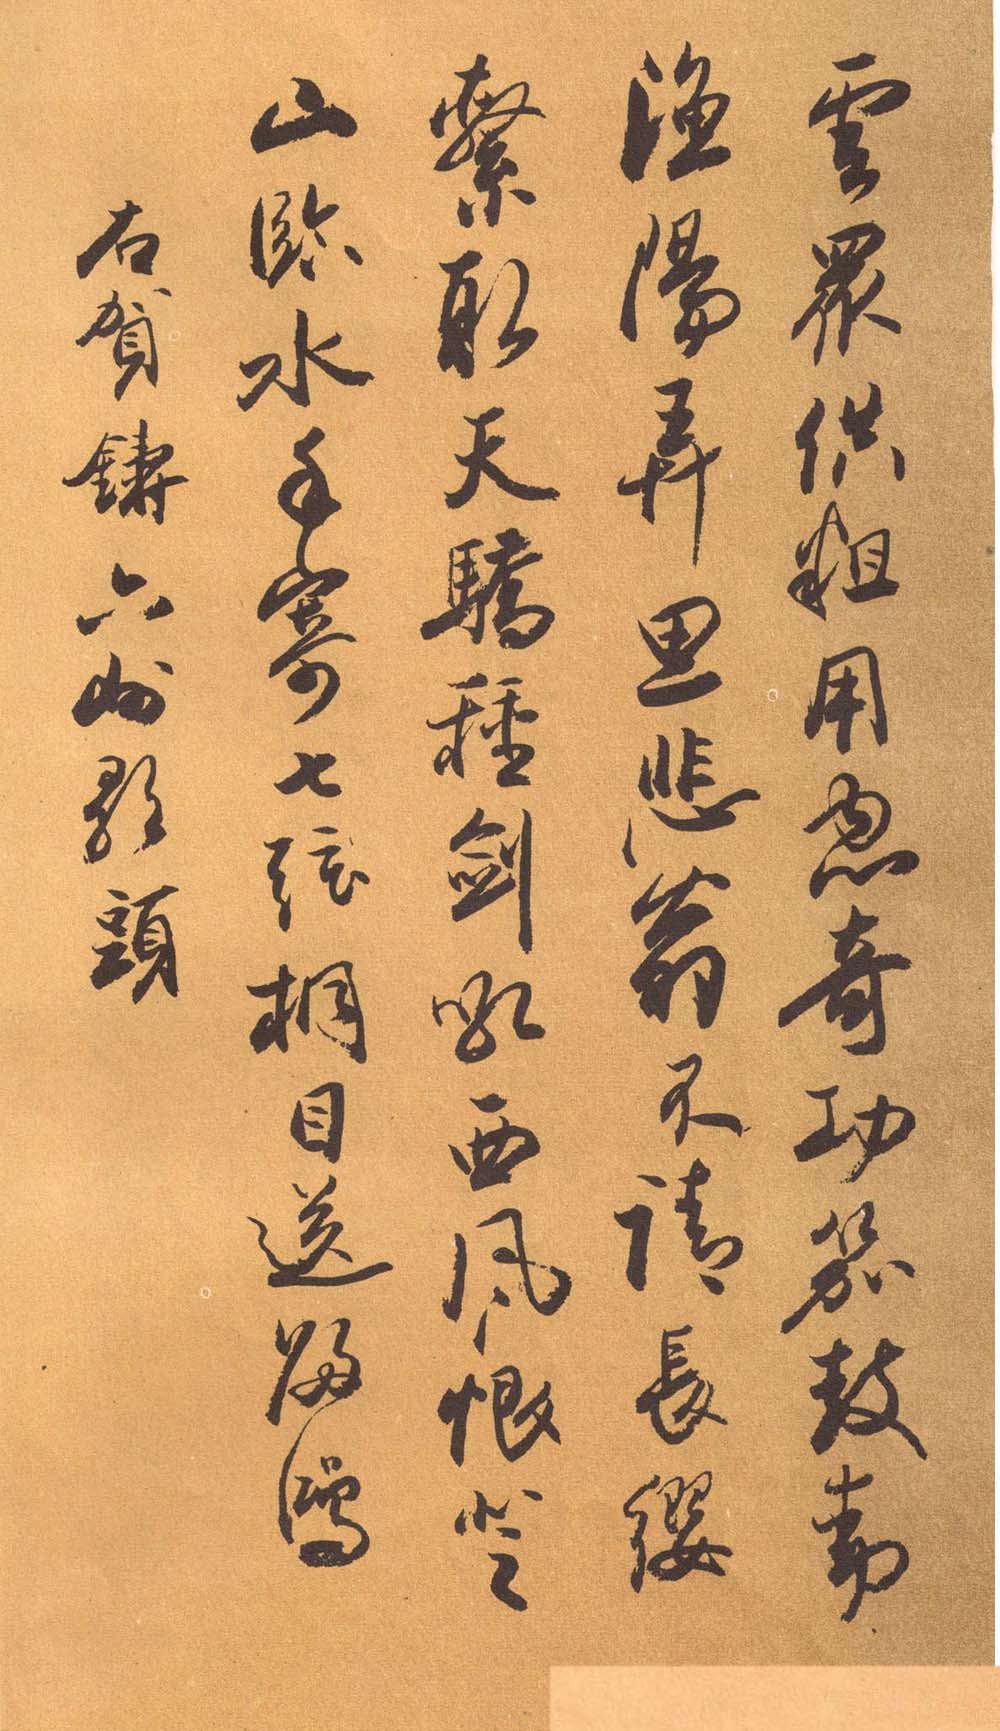 雲眾供粗用忽奇功笳鼓動
漁陽弄思悲翁不請長纓
繫取天驕種劍吼西風恨登
山臨水手寄七弦桐目送歸鴻
右賀鑄六州歌頭